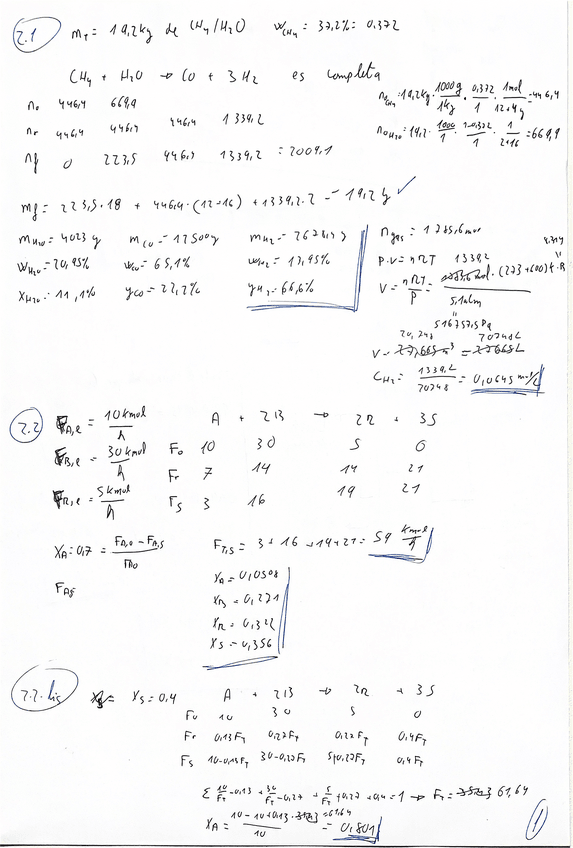 2.1 m_T = 19,2 kg de CH4/H2O w_CH4 = 37,2% = 0,372
CH4 + H2O → CO + 3H2 es completa
n_CH4 = 19,2kg · 1000g/1kg · 0,372/1 · 1mol/12+4g = 446,4
n_H2O = 19,2 · 1000/1 · 1-0,372/1 · 1/2+16 = 669,9
n0 446,4 669,9
nr 446,4 446,4 446,4 1339,2
nf 0 223,5 446,4 1339,2 = 2009,1
mf = 223,5·18 + 446,4·(12+16) + 1339,2·2 = 19,2 kg ✓
m_H2O = 4023 g m_CO = 12500g m_H2 = 2678,4 g
w_H2O = 20,95% w_CO = 65,1% w_H2 = 13,95%
x_H2O = 11,1% y_CO = 22,2% y_H2 = 66,6%
n_gas = 1785,6 mol
P·V = nRT 1339,2 8,314
V = nRT/P = 1785,6 mol · (273+600)K·R / 5,1atm
516757,5 Pa
20,748 20748L
V = 27,665 m³ = 27665L
C_H2 = 1339,2/20748 = 0,0645 mol/L
2.2 F_A,e = 10 kmol/h A + 2B → 2R + 3S
F_B,e = 30 kmol/h F0 10 30 5 0
Fr 7 14 14 21
F_R,e = 5 kmol/h Fs 3 16 19 21
X_A = 0,7 = F_A,0 - F_A,s / F_A0 F_T,s = 3 + 16 + 19 + 21 = 59 kmol/h
F_As
X_A = 0,0508
X_B = 0,271
X_R = 0,322
X_S = 0,356
2.2. bis X_S = 0,4 A + 2B → 2R + 3S
F0 10 30 5 0
Fr 0,13F_T 0,27F_T 0,27F_T 0,4F_T
Fs 10-0,13F_T 30-0,27F_T 5+0,27F_T 0,4F_T
Σ 10/F_T - 0,13 + 30/F_T - 0,27 + 5/F_T + 0,27 + 0,4 = 1 → F_T = 61,64
X_A = 10 - 10 + 0,13 · 61,64 / 10 = 0,801
1